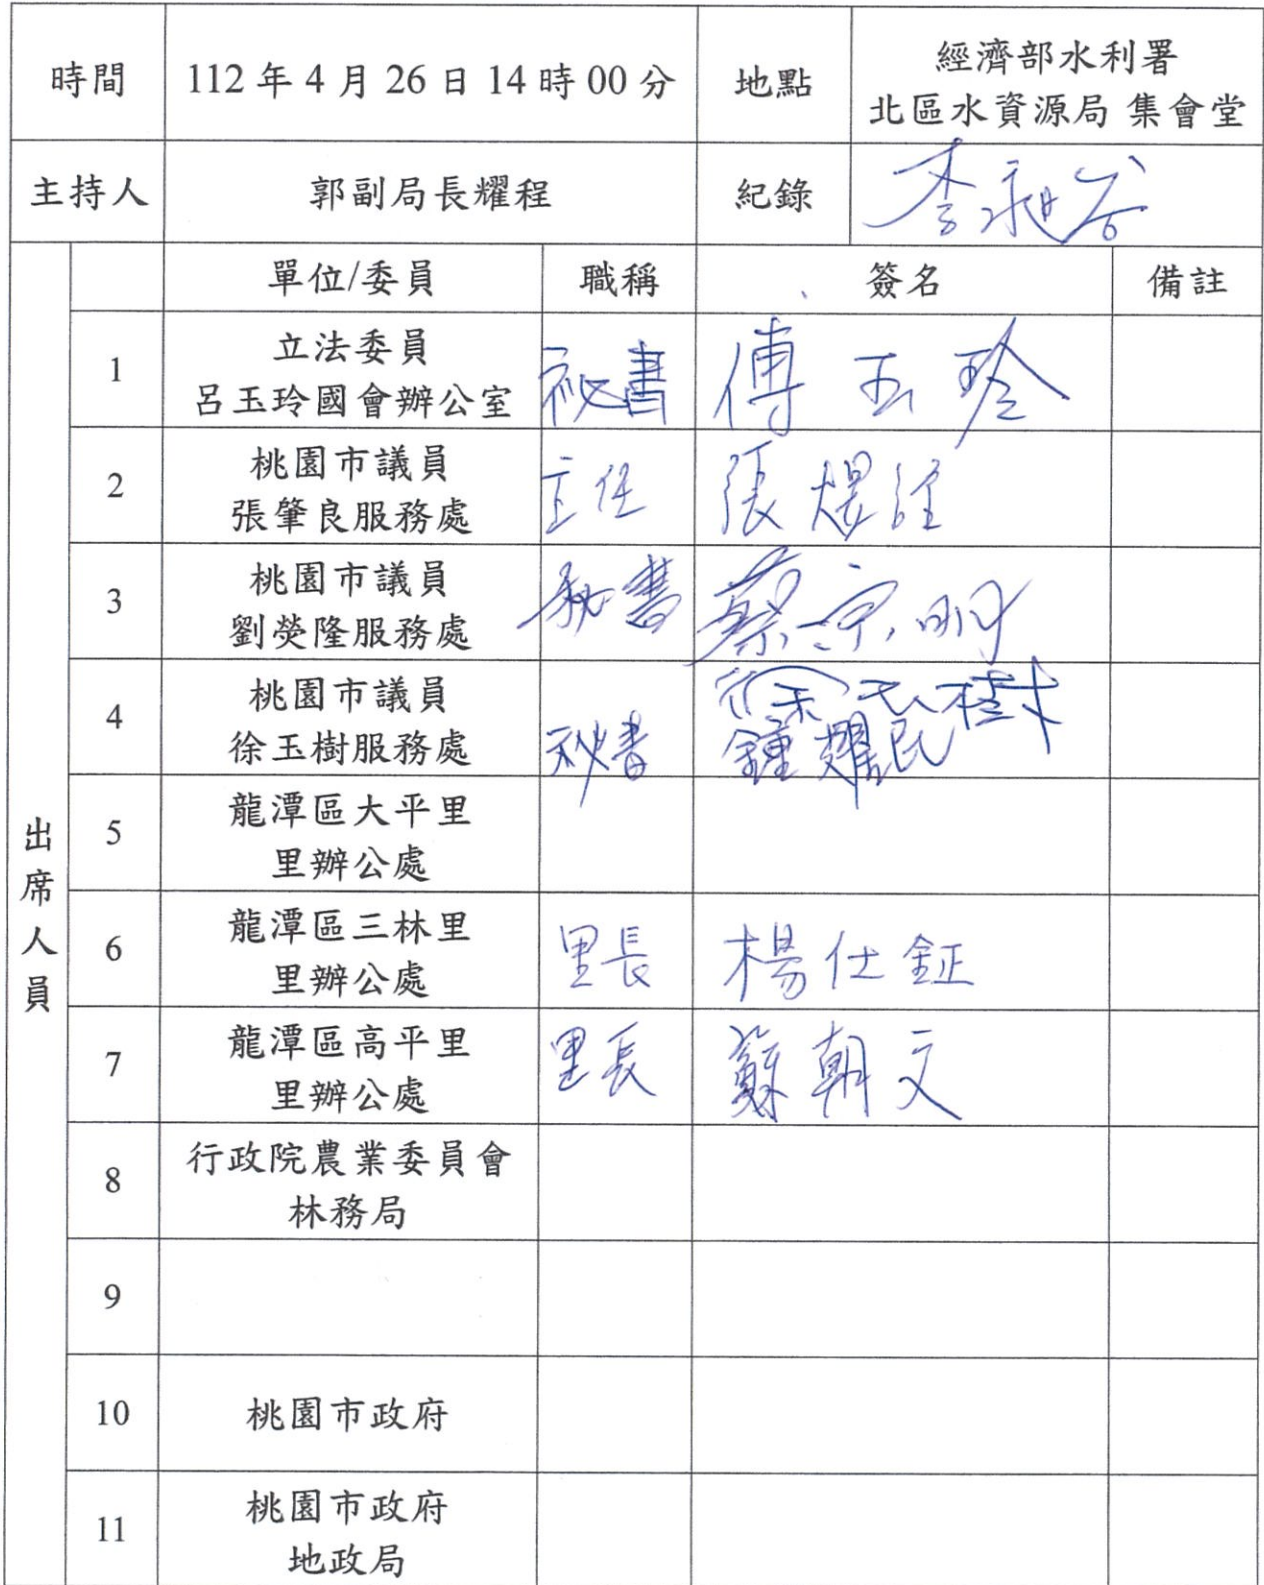 時間 112年4月26日14時00分 地點 經濟部水利署
北區水資源局 集會堂
主持人 郭副局長耀程 紀錄 李
出席人員
單位/委員 職稱 簽名 備註
1 立法委員
呂玉玲國會辦公室 秘書 傅玉玲
2 桃園市議員
張肇良服務處 主任 張煜
3 桃園市議員
劉熒隆服務處 秘書 蔡宗明
4 桃園市議員
徐玉樹服務處 秘書 徐玉樹
鍾耀民
5 龍潭區大平里
里辦公處
6 龍潭區三林里
里辦公處 里長 楊仕鉦
7 龍潭區高平里
里辦公處 里長 蘇朝文
8 行政院農業委員會
林務局
9
10 桃園市政府
11 桃園市政府
地政局